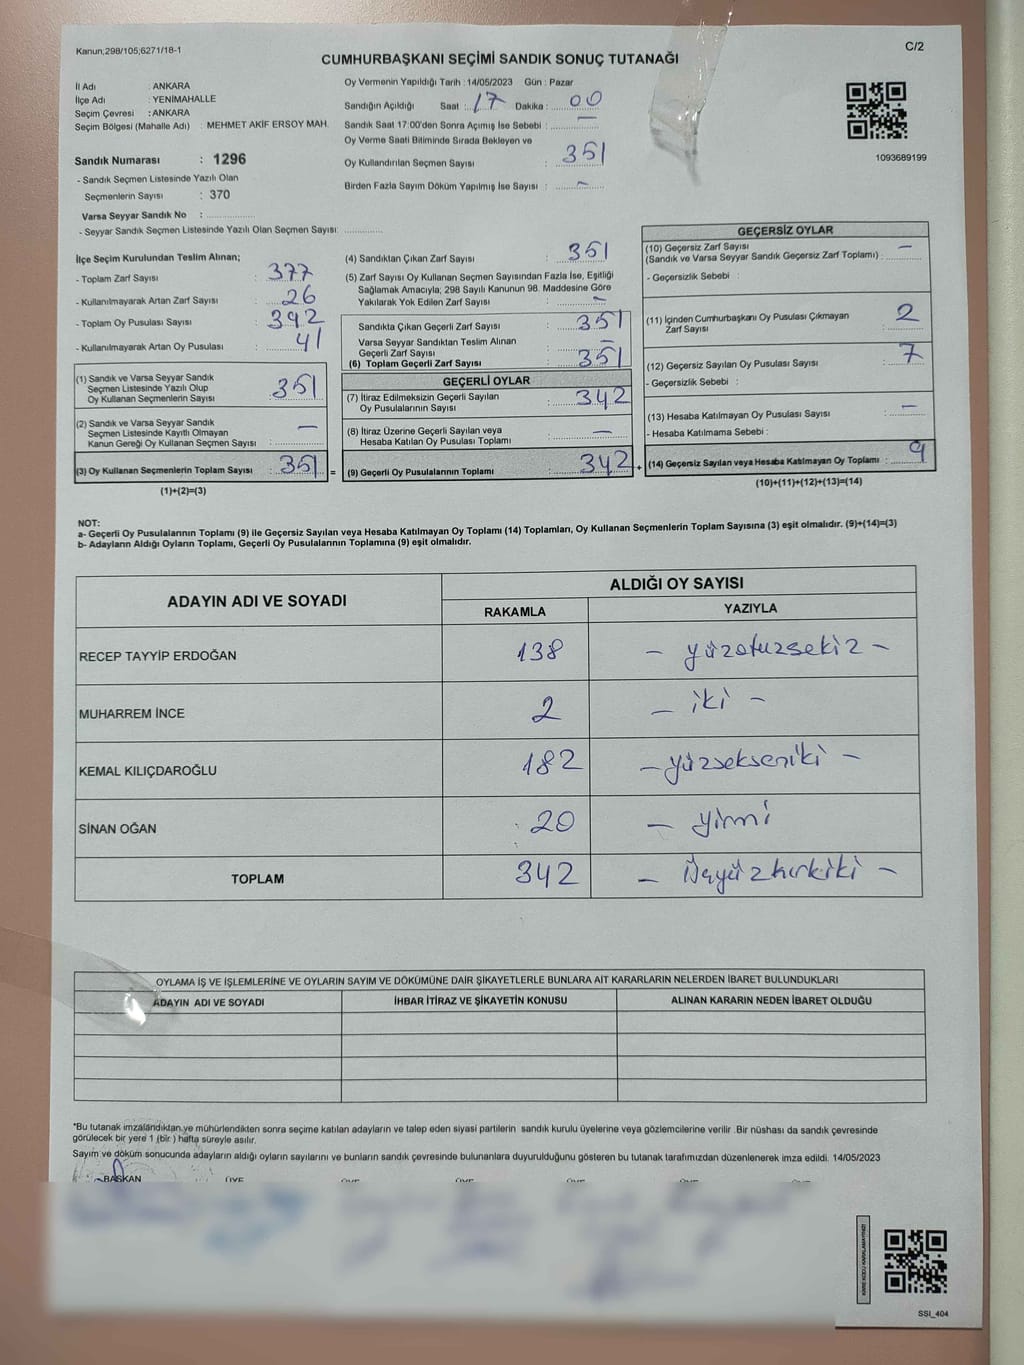 Kanun;298/105;6271/18-1
C/2
CUMHURBAŞKANI SEÇİMİ SANDIK SONUÇ TUTANAĞI
İl Adı : ANKARA
İlçe Adı : YENİMAHALLE
Seçim Çevresi : ANKARA
Seçim Bölgesi (Mahalle Adı) : MEHMET AKİF ERSOY MAH.
Sandık Numarası : 1296
- Sandık Seçmen Listesinde Yazılı Olan
Seçmenlerin Sayısı : 370
Varsa Seyyar Sandık No :
- Seyyar Sandık Seçmen Listesinde Yazılı Olan Seçmen Sayısı:
Oy Vermenin Yapıldığı Tarih : 14/05/2023 Gün : Pazar
Sandığın Açıldığı Saat : 17 Dakika : 00
Sandık Saat 17:00'den Sonra Açımış İse Sebebi : —
Oy Verme Saati Bitiminde Sırada Bekleyen ve
Oy Kullandırılan Seçmen Sayısı : 351
Birden Fazla Sayım Döküm Yapılmış İse Sayısı : –
1093689199
İlçe Seçim Kurulundan Teslim Alınan;
- Toplam Zarf Sayısı : 377
- Kullanılmayarak Artan Zarf Sayısı : 26
- Toplam Oy Pusulası Sayısı : 392
- Kullanılmayarak Artan Oy Pusulası : 41
(1) Sandık ve Varsa Seyyar Sandık
Seçmen Listesinde Yazılı Olup
Oy Kullanan Seçmenlerin Sayısı : 351
(2) Sandık ve Varsa Seyyar Sandık
Seçmen Listesinde Kayıtlı Olmayan
Kanun Gereği Oy Kullanan Seçmen Sayısı : —
(3) Oy Kullanan Seçmenlerin Toplam Sayısı : 351 =
(1)+(2)=(3)
(4) Sandıktan Çıkan Zarf Sayısı : 351
(5) Zarf Sayısı Oy Kullanan Seçmen Sayısından Fazla İse, Eşitliği
Sağlamak Amacıyla; 298 Sayılı Kanunun 98. Maddesine Göre
Yakılarak Yok Edilen Zarf Sayısı : –
Sandıkta Çıkan Geçerli Zarf Sayısı : 351
Varsa Seyyar Sandıktan Teslim Alınan
Geçerli Zarf Sayısı : –
(6) Toplam Geçerli Zarf Sayısı : 351
GEÇERLİ OYLAR
(7) İtiraz Edilmeksizin Geçerli Sayılan
Oy Pusulalarının Sayısı : 342
(8) İtiraz Üzerine Geçerli Sayılan veya
Hesaba Katılan Oy Pusulası Toplamı : —
(9) Geçerli Oy Pusulalarının Toplamı : 342 +
GEÇERSİZ OYLAR
(10) Geçersiz Zarf Sayısı
(Sandık ve Varsa Seyyar Sandık Geçersiz Zarf Toplamı) : —
- Geçersizlik Sebebi :
(11) İçinden Cumhurbaşkanı Oy Pusulası Çıkmayan
Zarf Sayısı : 2
(12) Geçersiz Sayılan Oy Pusulası Sayısı : 7
- Geçersizlik Sebebi :
(13) Hesaba Katılmayan Oy Pusulası Sayısı : —
- Hesaba Katılmama Sebebi :
(14) Geçersiz Sayılan veya Hesaba Katılmayan Oy Toplamı : 9
(10)+(11)+(12)+(13)=(14)
NOT:
a- Geçerli Oy Pusulalarının Toplamı (9) ile Geçersiz Sayılan veya Hesaba Katılmayan Oy Toplamı (14) Toplamları, Oy Kullanan Seçmenlerin Toplam Sayısına (3) eşit olmalıdır. (9)+(14)=(3)
b- Adayların Aldığı Oyların Toplamı, Geçerli Oy Pusulalarının Toplamına (9) eşit olmalıdır.
ADAYIN ADI VE SOYADI
ALDIĞI OY SAYISI
RAKAMLA YAZIYLA
RECEP TAYYİP ERDOĞAN 138 – yüzotuzsekiz –
MUHARREM İNCE 2 – iki –
KEMAL KILIÇDAROĞLU 182 – yüzsekseniki –
SİNAN OĞAN 20 – yirmi
TOPLAM 342 – Üçyüzkırkiki –
OYLAMA İŞ VE İŞLEMLERİNE VE OYLARIN SAYIM VE DÖKÜMÜNE DAİR ŞİKAYETLERLE BUNLARA AİT KARARLARIN NELERDEN İBARET BULUNDUKLARI
ADAYIN ADI VE SOYADI İHBAR İTİRAZ VE ŞİKAYETİN KONUSU ALINAN KARARIN NEDEN İBARET OLDUĞU
*Bu tutanak imzalandıktan ve mühürlendikten sonra seçime katılan adayların ve talep eden siyasi partilerin sandık kurulu üyelerine veya gözlemcilerine verilir .Bir nüshası da sandık çevresinde
görülecek bir yere 1 (bir ) hafta süreyle asılır.
Sayım ve döküm sonucunda adayların aldığı oyların sayılarını ve bunların sandık çevresinde bulunanlara duyurulduğunu gösteren bu tutanak tarafımızdan düzenlenerek imza edildi. 14/05/2023
BAŞKAN ÜYE ÜYE ÜYE ÜYE ÜYE
KARE KODU KARALAMAYINIZ!
SSI_404